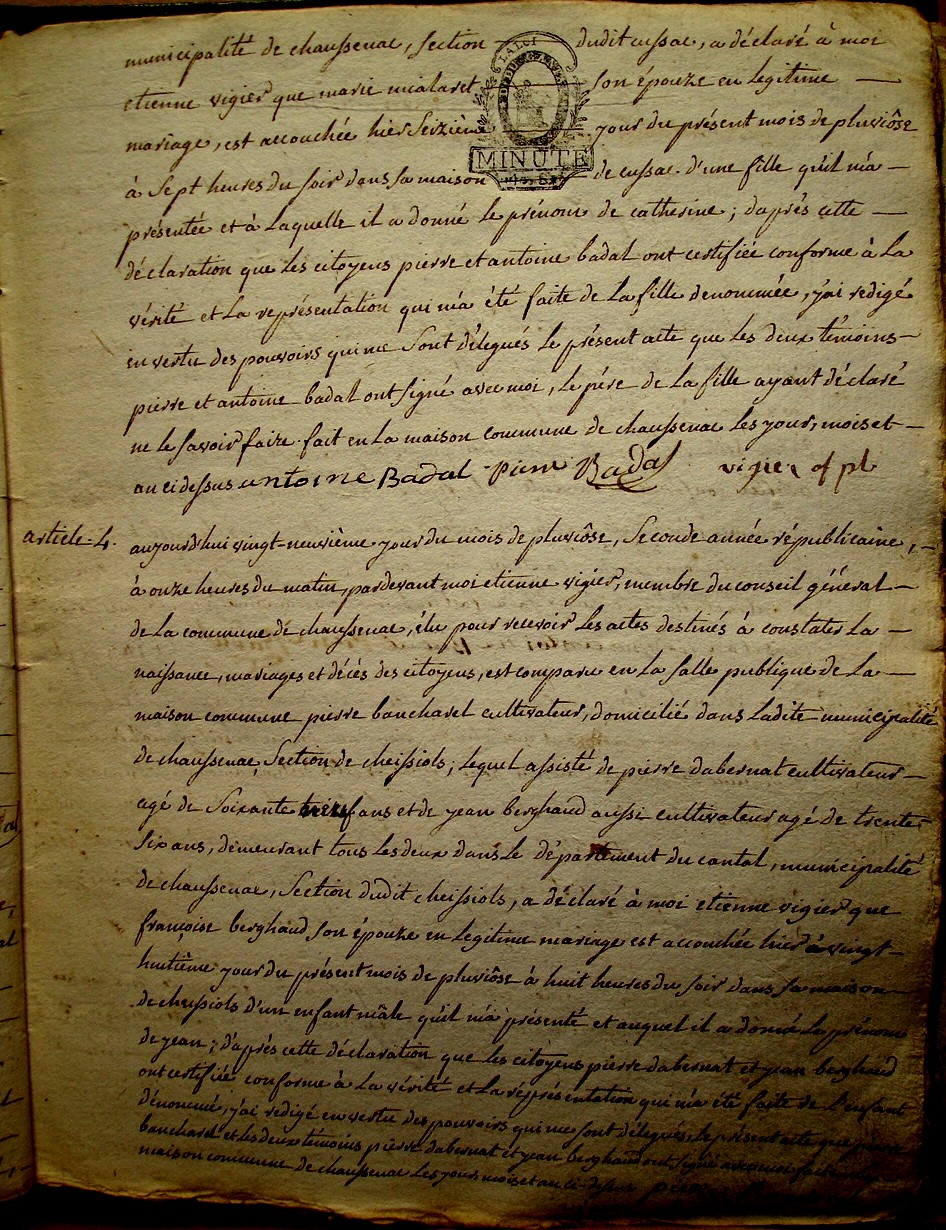 municipalité de chaussenac, section dudit cussac, a déclaré à moi
LA LOI
etienne vigier que marie mialaret son épouze en legitime
mariage, est accouchée hier seizième jour du présent mois de pluviôse
MINUTE
à sept heures du soir dans sa maison de cussac d'une fille qu'il m'a
présentée et à laquelle il a donné le prénom de catherine; d'aprés cette
déclaration que les citoyens pierre et antoine badal ont certifiée conforme à la
vérité et la représentation qui m'a été faite de la fille denommée, j'ai redigé
en vertu des pouvoirs qui me sont délegués le présent acte que les deux témoins
pierre et antoine badal ont signé avec moi, le pére de la fille ayant déclaré
ne le savoir faire. fait en la maison commune de chaussenac les jour, mois et
an ci dessus antoine Badal pierre Badal vigier of pl
article 4. aujourd'hui vingt-neuvième jour du mois de pluviôse, seconde année républicaine,
à onze heures du matin, pardevant moi etienne vigier, membre du conseil général
de la commune de chaussenac, élu pour recevoir les actes destinés à constater la
naissance, mariages et décès des citoyens, est comparu en la salle publique de la
maison commune pierre boucharel cultivateur, domicilié dans ladite municipalité
de chaussenac, section de cheissiols; lequel assisté de pierre dabernat cultivateur
agé de soixante ans et de jean berghaud aussi cultivateur agé de trente
six ans, demeurant tous les deux dans le département du cantal, municipalité
de chaussenac, section dudit cheissiols, a déclaré à moi etienne vigier que
françoise berghaud son épouze en legitime mariage est accouchée hier vingt
huitième jour du présent mois de pluviôse à huit heures du soir dans sa maison
de cheissiols d'un enfant mâle qu'il m'a présenté et auquel il a donné le prénom
de jean; d'aprés cette déclaration que les citoyens pierre dabernat et jean berghaud
ont certifiée conforme à la vérité et la représentation qui m'a été faite de l'enfant
dénommé, j'ai redigé en vertu des pouvoirs qui me sont délegués, le présent acte que pierre
boucharel et les deux témoins pierre dabernat et jean berghaud ont signé avec moi fait en la
maison commune de chaussenac les jour mois et an ci-dessus pierre